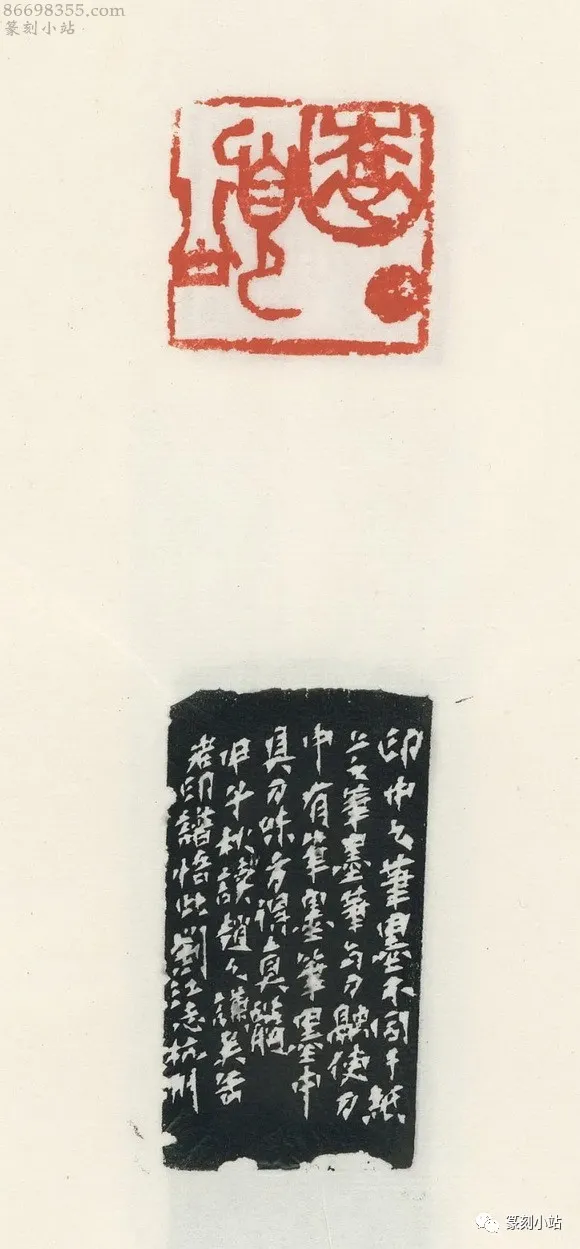 86698355.com
篆刻小站
印中之筆墨不同于紙
上之筆墨筆与刀融使刀
中有筆墨筆墨中
具刀味方得真髓
午秋讀趙之謙吴缶
老印譜悟此劉江志杭州
篆刻小站